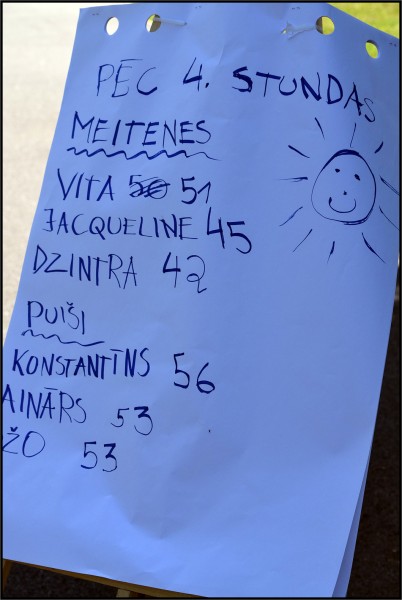 PĒC 4. STUNDAS
MEITENES
VITA 51
JACQUELINE 45
DZINTRA 42
PUIŠI
KONSTANTĪNS 56
AINĀRS 53
ŽO 53